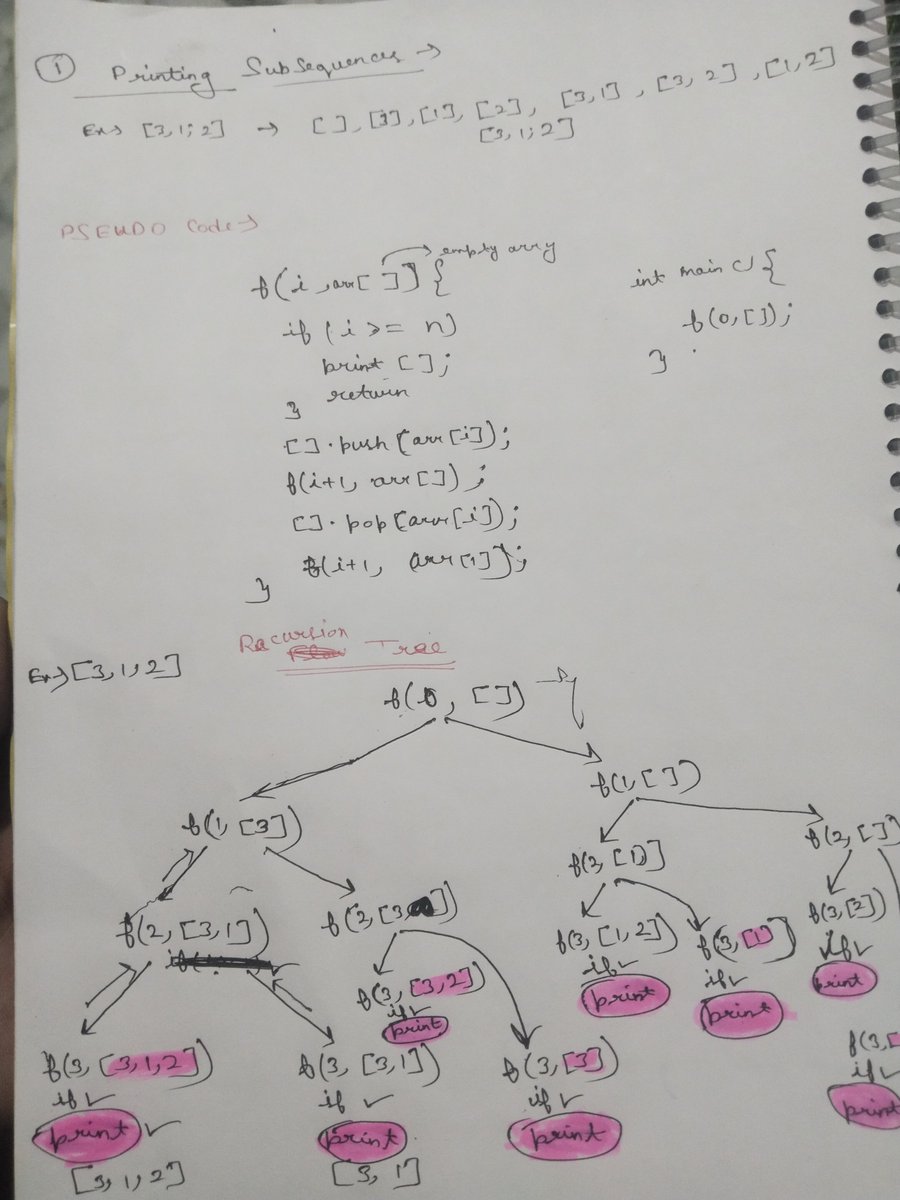 ① Printing Subsequences →
Ex→ [3,1,2] → [ ], [3], [1], [2], [3,1], [3,2], [1,2]
[3,1,2]
PSEUDO Code→
empty arry
f(i, arr[ ]) {
int main () {
if (i >= n)
f(0,[ ]);
print [ ];
}
return
}
[ ].push(arr[i]);
f(i+1, arr[ ]);
[ ].pop(arr[i]);
f(i+1, arr[i]);
}
Recursion Tree
Ex→[3,1,2]
f(0, [ ])
f(1,[ ])
f(1, [3])
f(2, [ ]
f(2, [1)]
f(2, [3,1])
f(2, [3 ])
f(3, [1,2])
f(3,[1])
f(3,[2])
if ✓
if ✓
if ✓
print
print
print
f(3, [3,2])
if ✓
print
f(3, [3,1,2])
f(3, [3,1])
f(3,[3])
f(3,[
if ✓
if ✓
if ✓
if ✓
print ✓
print
print
print
[3,1,2]
[3,1]